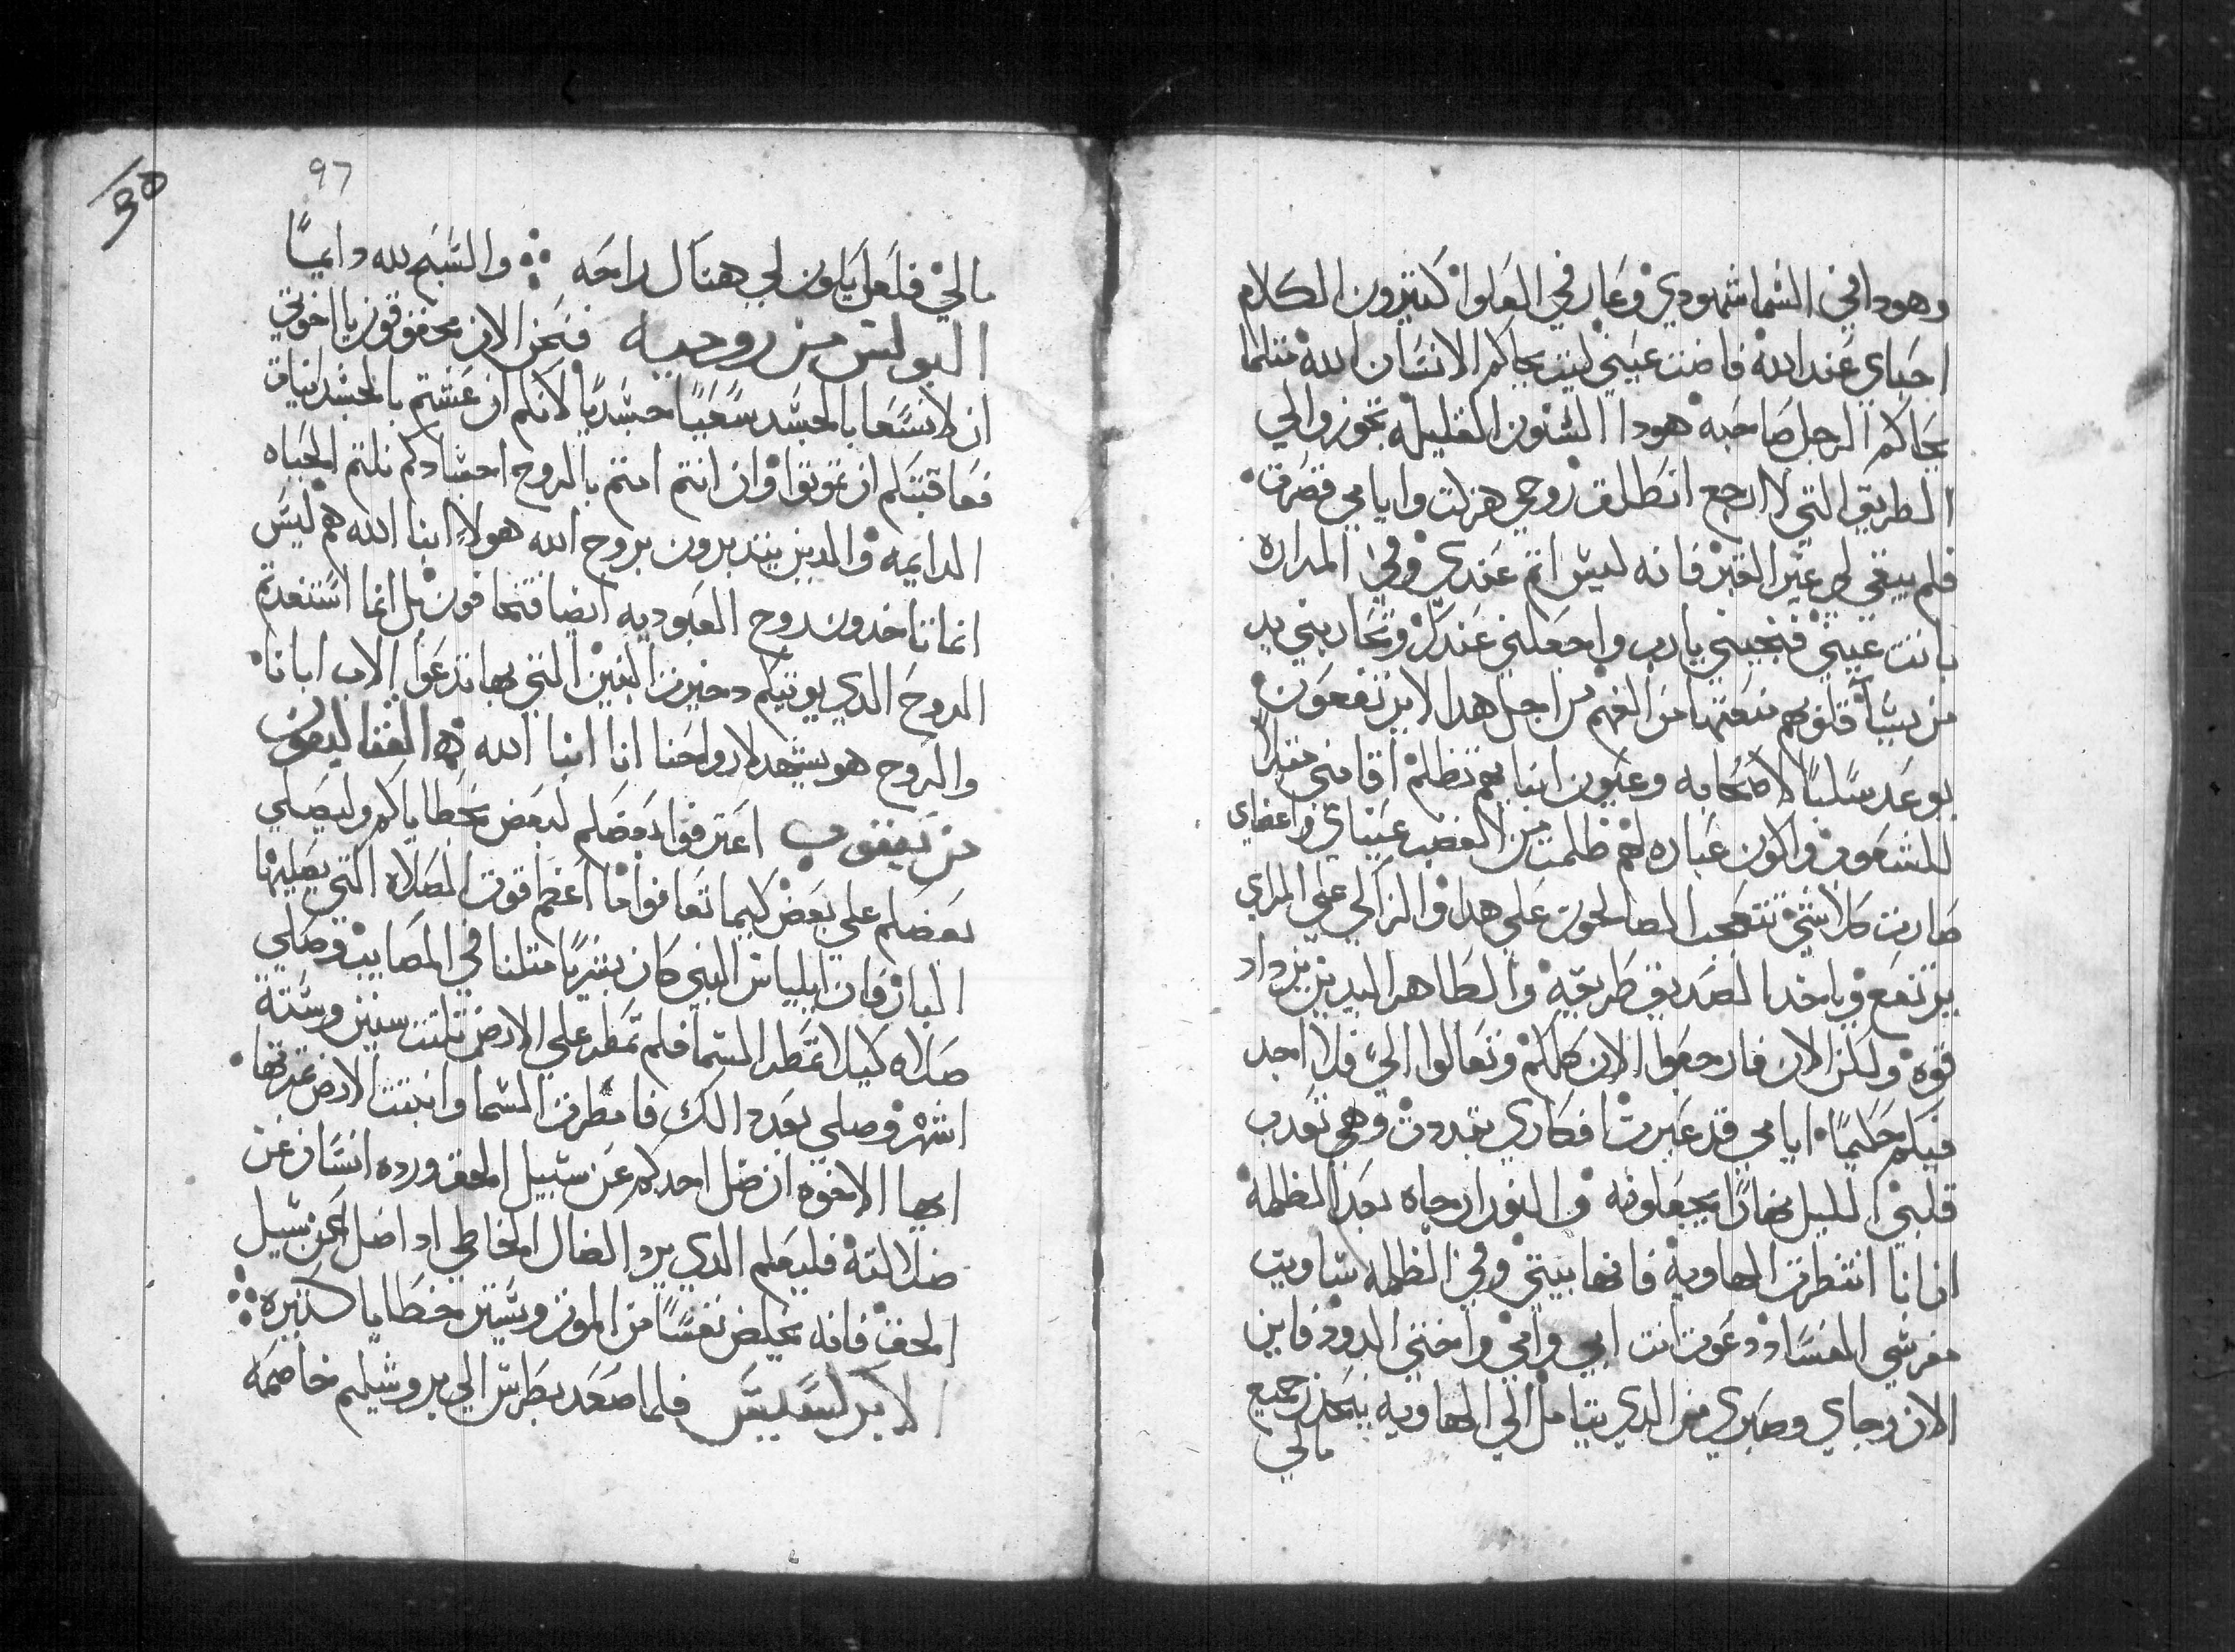 وهودا في السما شهودي وعارفي العلوا كتيرون الكلام
احباي عند الله فاضت عيني ليت يحاكم الانسان الله متلما
يحاكم الرجل صاحبه هودا السنون القليله تجوز والي
الطريق التي لا ارجع انطلق روحي هزلت وايامي قصرت
فلم يبقي لي غير القبر فانه ليس اتم عندي وفي المراره
باتت عيني فنجيني يارب واجعلني عندك وتحاربني يد
من يشا قلوبهم منعتها من الفهم من اجل هدا لا يرتفعون
يوعد سلبا لاصحابه وعيون ابنايهم تظلم اقامني متلا
للشعوب واكون عباره لهم ظلمت من الغضب عيناي واعضاي
صارت كلا شي تتعجب الصالحون علي هدا والزاكي علي المراي
يرتفع وياخد الصديق طريقه والطاهر اليدين يزداد
قوه ولكن الان فارجعوا الان كلكم وتعالوا الي فلا اجد
فيكم حكيما ايامي قد عبرت افكاري تبددت وهي تعدب
قلبي الليل نهارا يجعلونه والنور ارجاه بعد الظلمة
ان انا انتظرت الهاوية فانها بيتي وفي الظلمه ساويت
مفرشي الفساد دعوت انت ابي وامي واختي الدود فاين
الان رجاي وصبري من الدي يتامل الي الهاويه ينحدر جميع
مالي
97
30
مالي فلعل يكون لي هناك راحه ⁘ والسبح لله دايما
البولس من روميه فنحن الان محقوقون يا اخوتي
ان لا نسعا بالجسد سعيا جسديا لانكم ان عشتم بالجسدانيات
فعاقبتكم ان تموتوا وان انتم امتم بالروح اجسادكم نلتم الحياه
الدايمه والدين يتدبرون بروح الله هولاء ابنا الله هم ليس
انما تاخدون روح العبوديه ايضا فتخافون بل انما استفدتم
الروح الدي يوتيكم دخيرت البنين التي بها ندعوا الاب ابانا
والروح هو يشهد لارواحنا انا ابنا الله ⁘ القتاليقون
من يعقوب اعترفوا بعضكم لبعض بخطاياكم وليصلي
بعضكم علي بعض كيما تعافوا ما اعظم قوت الصلاه التي يصليها
البار فان ايلياس النبي كان بشريا متلنا في المصايب وصلي
صلاه كيلا تمطر السما فلم تمطر علي الارض تلتت سنين وستة
اشهر وصلي بعد دالك فامطرت السما وانبتت الارض تمرتها
ايها الاخوه ان ضل احدكم عن سبيل الحق ورده انسان عن
ضلالته فليعلم الدي يرد الضال الخاطي ادا ضل عن سبيل
الحق فانه يخلص نفسا من الموت ويستر خطايا كتيره ⁘
الابركسيس فلما صعد بطرس الي يروشليم خاصمه